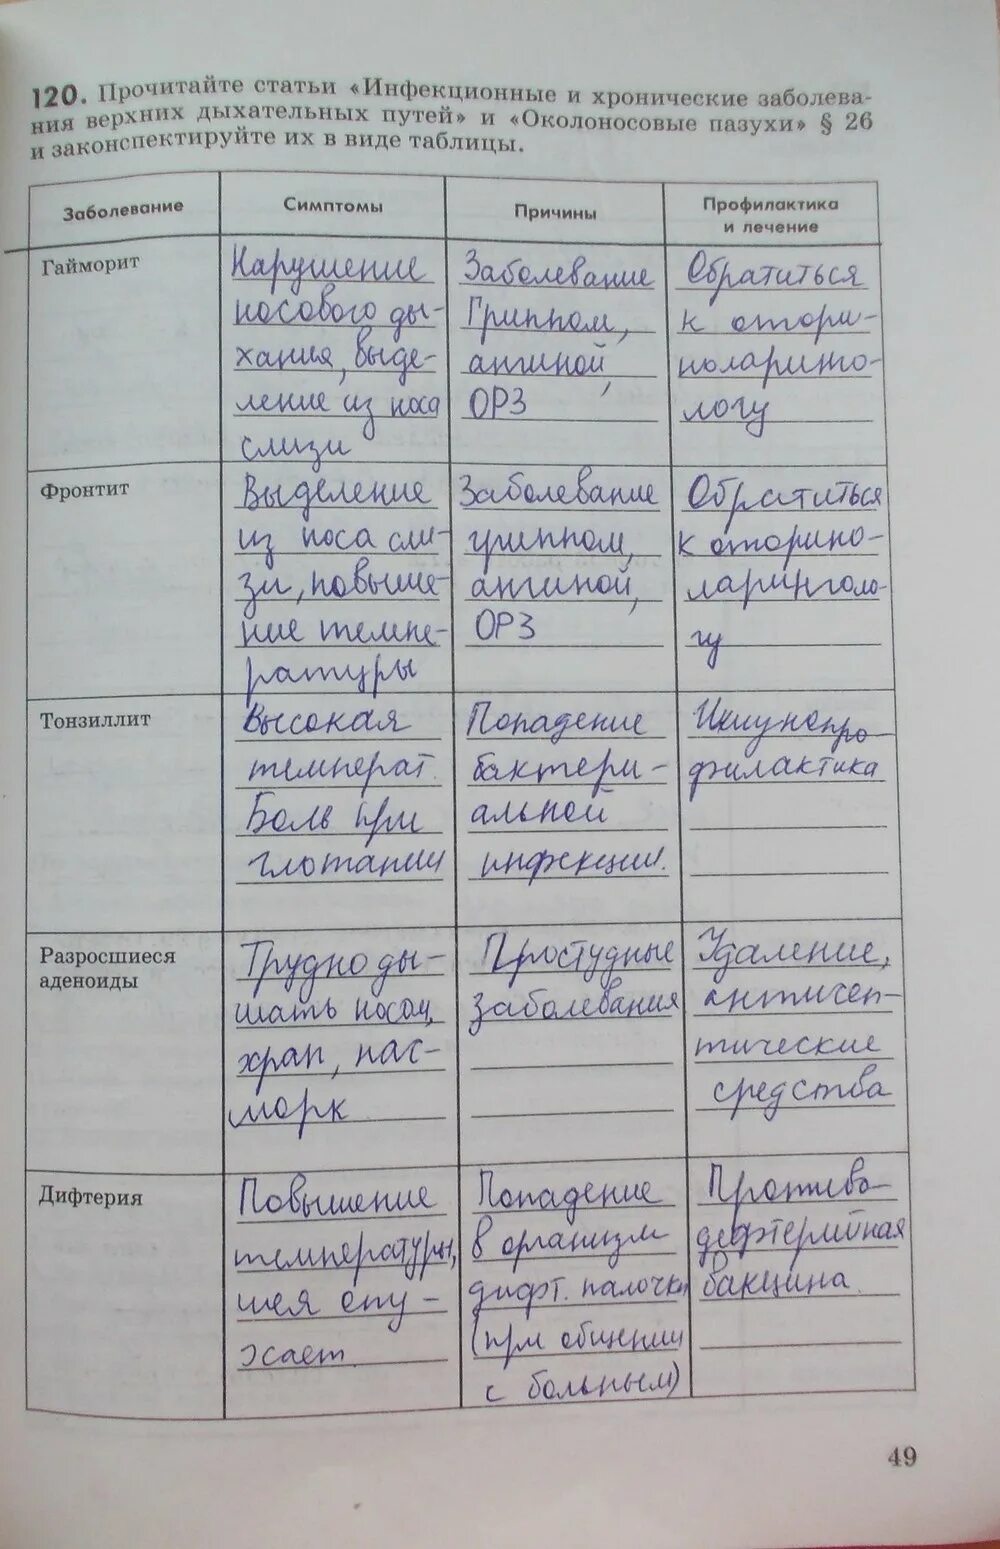 120. Прочитайте статьи «Инфекционные и хронические заболева-
ния верхних дыхательных путей» и «Околоносовые пазухи» § 26
и законспектируйте их в виде таблицы.
Заболевание
Симптомы
Причины
Профилактика
и лечение
Гайморит
Нарушение
носового ды-
хания, выде-
ление из носа
слизи
Заболевание
Гриппом,
ангиной,
ОРЗ
Обратиться
к отори-
ноларинго-
логу
Фронтит
Выделение
из носа сли-
зи, повыше-
ние темпе-
ратуры
Заболевание
гриппом,
ангиной,
ОРЗ
Обратиться
к оторино-
ларинголо-
гу
Тонзиллит
Высокая
температ.
Боль при
глотании
Попадение
бактери-
альной
инфекции.
Иммунопро
филактика
Разросшиеся
аденоиды
Трудно ды-
шать носом,
храп, нас-
морк
Простудные
заболевания
Удаление,
антисеп-
тические
средства
Дифтерия
Повышение
температуры,
шея опу-
хает
Попадение
в организм
дифт. палочки
(при общении
с больным)
Противо-
дифтерийная
вакцина.
49